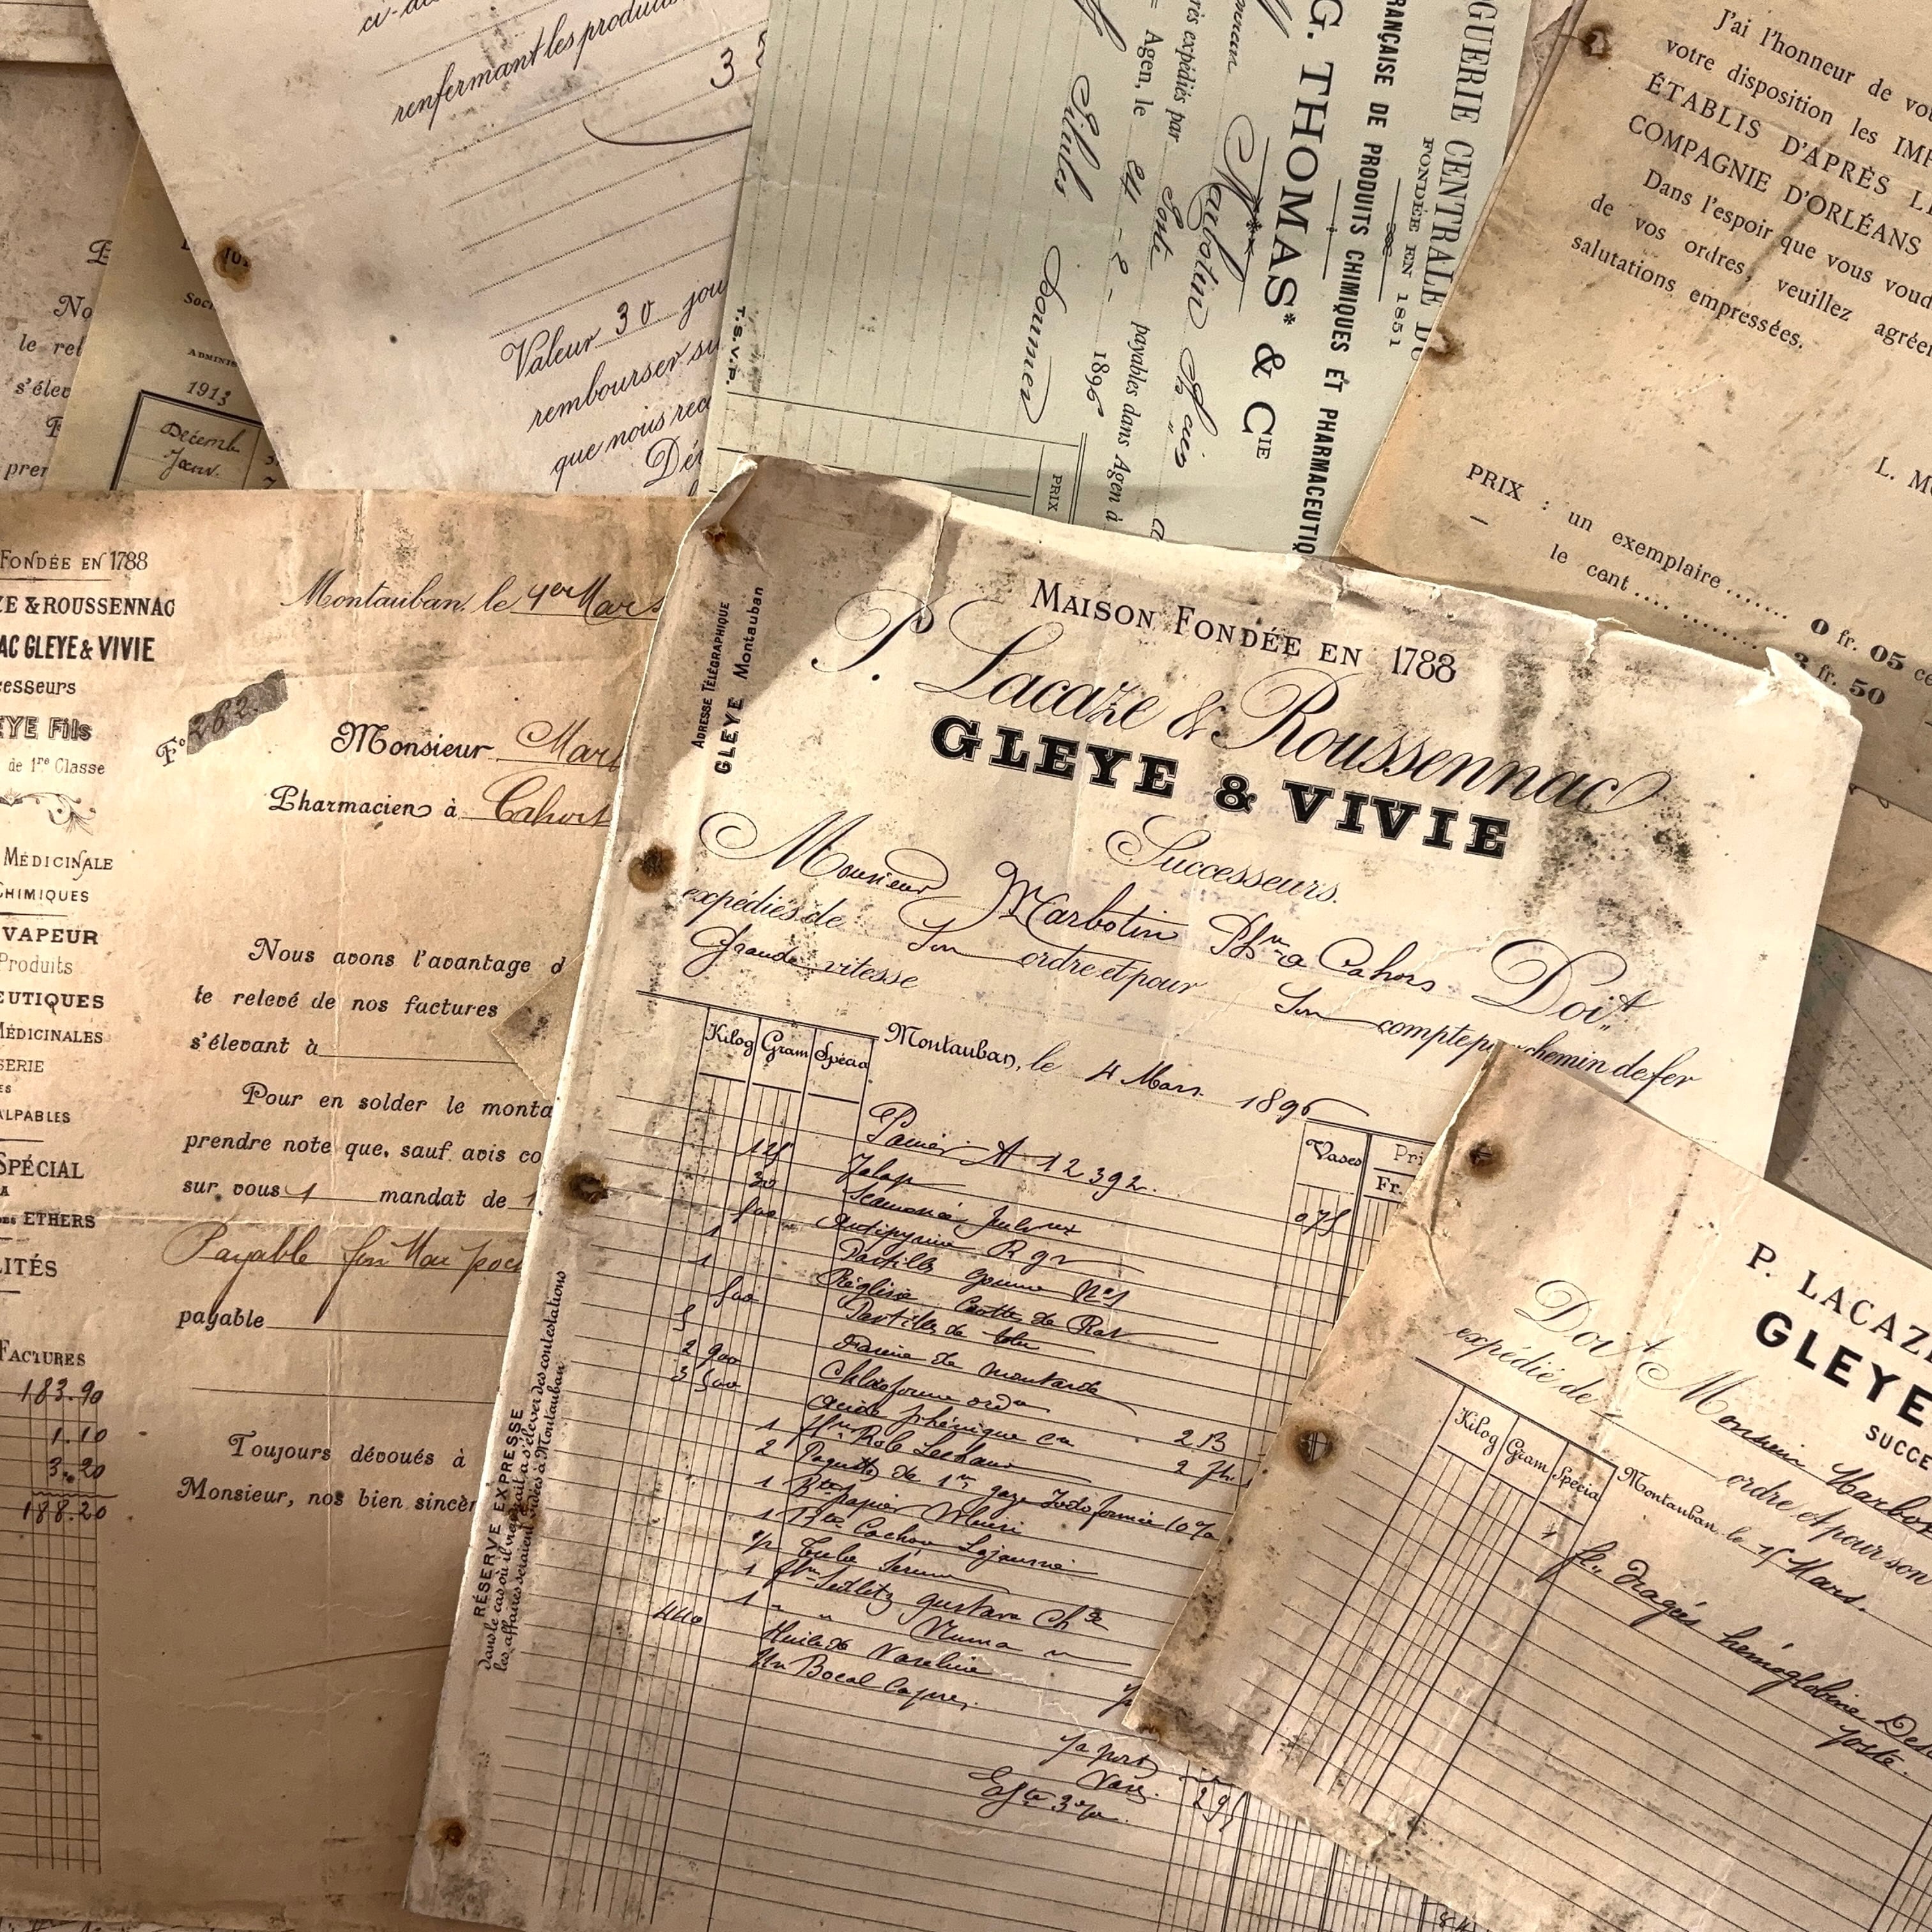 renfermant les produits
Valeur 30 jou
rembourser su
que nous reco
T.S.V.P.
GUERIE CENTRALE DU
FONDÉE EN 1851
RANÇAISE DE PRODUITS CHIMIQUES ET PHARMACEUTIQ
G. THOMAS & CIE
Marbotin
ris expédiés par Poste payables dans Agen à
Agen, le 24 - 2 - 1896
Pilules
PRIX
J'ai l'honneur de vou
votre disposition les IMP
ÉTABLIS D'APRÈS LE
COMPAGNIE D'ORLÉANS
Dans l'espoir que vous voud
de vos ordres, veuillez agréer
salutations empressées.
L. M
PRIX : un exemplaire ....... 0 fr. 05 ce
— le cent .... ........ 3 fr. 50
No
le rel
s'élev
prer
Soci
ADMINIS
1913
Décemb.
Janv.
FONDÉE EN 1788
ZE & ROUSSENNAC
AC GLEYE & VIVIE
cesseurs
EYE Fils
de 1re Classe
MÉDICINALE
CHIMIQUES
VAPEUR
Produits
EUTIQUES
MÉDICINALES
SERIE
ES
ALPABLES
SPÉCIAL
ETHERS
LITÉS
FACTURES
183.90
1.10
3.20
188.20
Montauban, le 4er Mars
Fo 262
Monsieur Mar
Pharmacien à Cahors
Nous avons l'avantage d
le relevé de nos factures
s'élevant à
Pour en solder le monta
prendre note que, sauf avis co
sur vous 1 mandat de 1
Payable
payable
Toujours dévoués à
Monsieur, nos bien sincèr
ADRESSE TÉLÉGRAPHIQUE
GLEYE Montauban
MAISON FONDÉE EN 1788
P. Lacaze & Roussennac
GLEYE & VIVIE
Successeurs.
Monsieur Marbotin Phen a Cahors Doit
expédiés de Son ordre et pour Son compte p chemin de fer
Grande vitesse
Kilog Gram Spécia
Montauban, le 4 Mars 1896
Vases Pri
Fr.
Panier A 12392.
125 Jalap 075
30
500 Antipyrine R g r
1 Pastilles gomme No 1
1 Réglisse Carotte de Rat
500 Pastilles de tolu
5 Farine de moutarde
2 900 Chloforme ord
3 500 acide phénique 2 B
1 2 fl.
2 Paquetts de 1m gaze Iodoformée 10%
1 Bte papier
1 Bte Cachou Lajaunie
1/2 Tube Sérum
1 flon Sedlitz gustave Ch
1 " " Numa
440 Huile de Vaseline
Un Bocal
port
Vase
Este 3%
295
RÉSERVE EXPRESSE
Dans le cas où il viendrait à s'élever des contestations
les affaires seraient jugées à Montauban.
P. LACAZE
GLEYE
SUCCE
Doit Monsieur Marbot
expédié de ordre et pour son
Kilog Gram Spécia
Montauban, le 15 Mars.
1 fl. Dragées hémoglobine Des
poste.